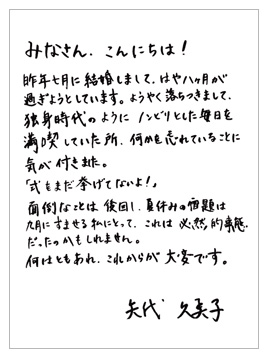 みなさん、こんにちは!
昨年七月に結婚しまして、はや八ヶ月が
過ぎようとしています。ようやく落ちつきまして、
独身時代のように ノンビリとした毎日を
満喫していた所、何かを忘れていることに
気が付きました。
「式もまだ挙げてないよ!」
面倒なことは後回し、夏休みの宿題は
九月にすませる私にとって、これは 必然的事態
だったのかもしれません。
何はともあれ、これからが 大変です。
矢代 久美子